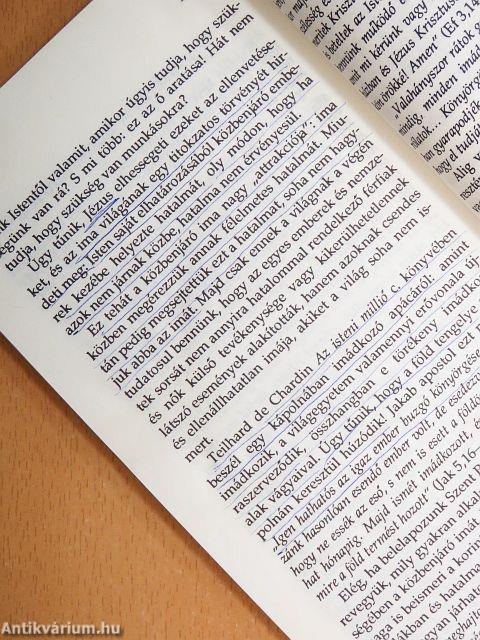 k Istentől valamit, amikor úgyis tudja, hogy szük-
ségünk van rá? S mi több: ez az ő aratása! Hát nem
tudja, hogy szükség van munkásokra?
Úgy tűnik, Jézus elhessegeti ezeket az ellenvetése-
ket, és az ima világának egy titokzatos törvényét hir-
deti meg: Isten saját elhatározásából közbenjáró embe-
rek kezébe helyezte hatalmát, oly módon, hogy ha
azok nem járnak közbe, hatalma nem érvényesül.
Ez tehát a közbenjáró ima nagy „attrakciója”: ima
közben megérezzük annak félelmetes hatalmát. Miu-
tán pedig megsejtettük ezt a hatalmat, soha nem hagy-
juk abba az imát. Majd csak ennek a világnak a végén
tudatosul bennünk, hogy az egyes emberek és nemze-
tek sorsát nem annyira hatalommal rendelkező férfiak
és nők külső tevékenysége vagy kikerülhetetlennek
látszó események alakították, hanem azoknak csendes
és ellenállhatatlan imája, akiket a világ soha nem is-
mert.
Teilhard de Chardin Az isteni millió c. könyvében
beszél egy kápolnában imádkozó apácáról, amint
imádkozik, a világegyetem valamennyi erővonala új-
raszerveződik, összhangban e törékeny imádkozó
alak vágyaival. Úgy tűnik, hogy a föld tengelye a
polnán keresztül húzódik! Jakab apostol ezt
„Igen hathatós az igaz ember buzgó könyörgése
zánk hasonlóan esendő ember volt, de esedezve
hogy ne essék az eső, s nem is esett a földön
hat hónapig. Majd ismét imádkozott, és
mire a föld termést hozott” (Jak 5,16
Elég, ha belelapozunk Szent P
revegyük, mily gyakran alkal
ségében a közbenjáró imát
gs is beismeri a kor
ban és hatalma
yan járha
ennünk működő e
meritek Krisztus
is beteltek az Iste
mit mi kérünk vagy
házban és Jézus Krisztus
kön örökké! Amen” (Ef 3,14
„Valahányszor rátok g
mindig minden imád
nálatok... Könyörgé